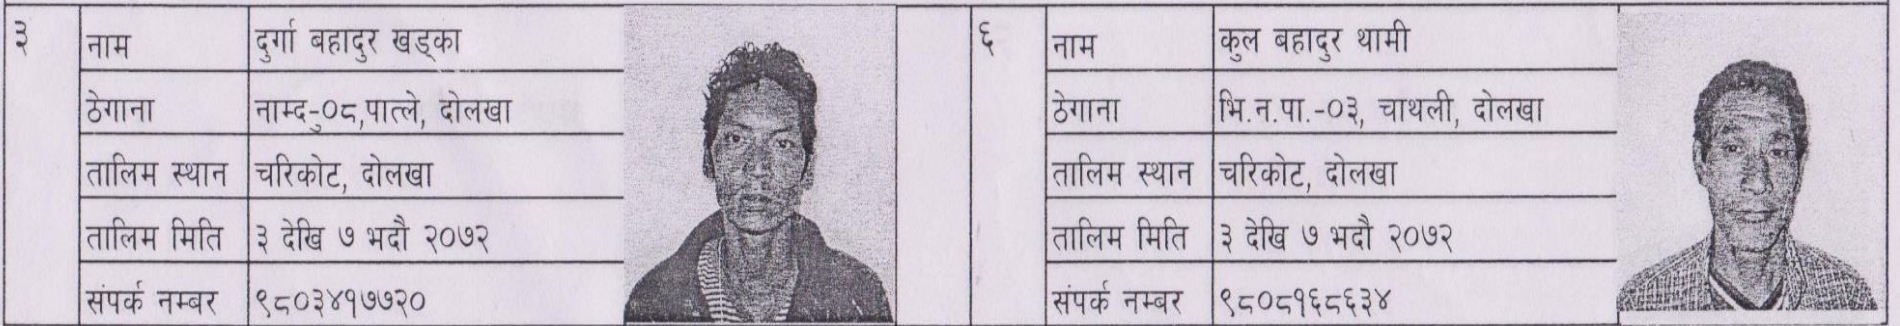 ३
नाम दुर्गा बहादुर खड्का
ठेगाना नाम्दु-०८,पात्ले, दोलखा
तालिम स्थान चरिकोट, दोलखा
तालिम मिति ३ देखि ७ भदौ २०७२
संपर्क नम्बर ९८०३४१७७२०
६
नाम कुल बहादुर थामी
ठेगाना भि.न.पा.-०३, चाथली, दोलखा
तालिम स्थान चरिकोट, दोलखा
तालिम मिति ३ देखि ७ भदौ २०७२
संपर्क नम्बर ९८०८१६८६३४